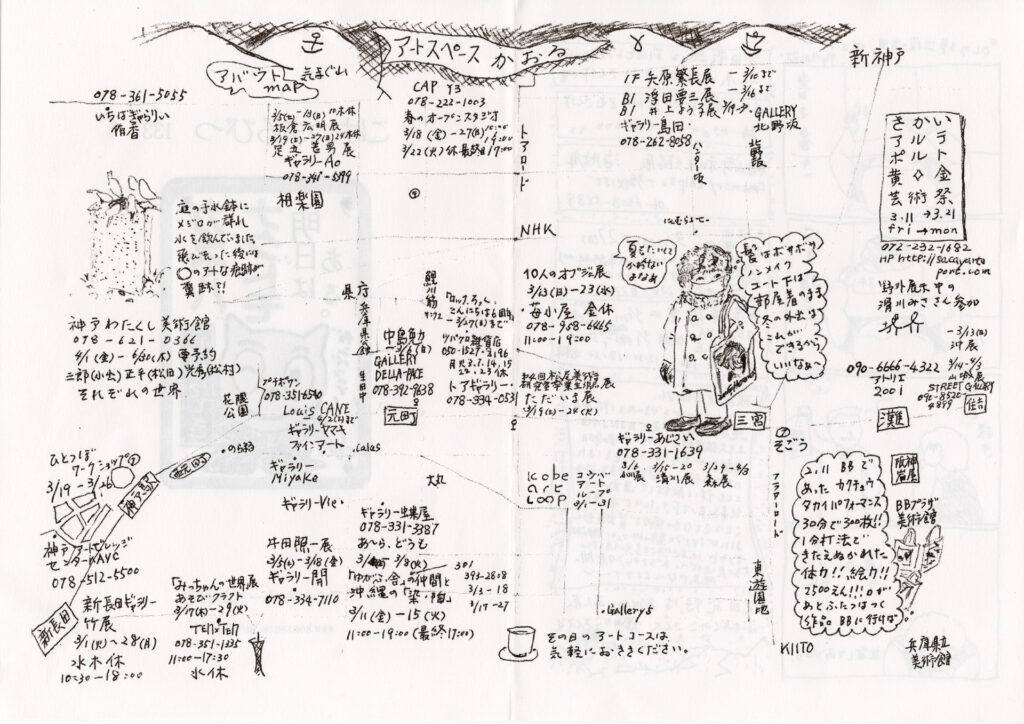 アートスペース かおる
アバウト
map
元まぐ山
新神戸
078-361-5055
いちばぎゃらりい
侑香
3/5(土)-13(日)10木休
板倉広明展
3/19(土)-27(日)24木休
足立 苦男 展
ギャラリーAo
078-341-5399
相楽園
CAP Y3
078-222-1003
春のオープンスタジオ
3/18(金)-27(日)
3/22(火)休
トアロード
NHK
1F 兵原繁長展
B1 浮田要三展
ギャラリー島田
078-262-8058
ハンター坂
GALLERY
北野坂
北野坂
さかい
アルテ
ポルト
黄金
芸術祭
3.11→3.21
fri→mon
072-232-1682
HP http://sacayarteport.com
野外展示中の
滑川みささん参加
庭の手水鉢に
メジロが群れ
水を飲んでいました
飛び去った後には
のアートな痕跡が
糞跡?!
神戸わたくし美術館
078-621-0366
4/1(金)-6/30(木) 要予約
三郎(小出) 正平(松田) 光彦(松村)
それぞれの世界
花隈
公園
プチボワン
078-351-6540
Louis CANE
ギャラリーヤマキ
ファインアート
県庁
兵庫県公館
鯉川筋
生田中
中島勉
GALLERY
DELLA-PACE
078-392-9638
元町
ロックろっく
こんにちは6周年
3/27(日)まで
ツバクロ雑貨店
050-1527-8196
トアギャラリー
078-334-0531
10人のオブジェ展
3/13(日)-23(水)
苺小屋 金休
078-958-6465
11:00-19:00
ただいま展
3/19(土)-24(木)
夏もたいして
かわらない
なぁ
髪はボサボサ
ノンメイク
コート下は
部屋着のまま
冬の外出は
これが
できるから
いいなぁ
三宮
そごう
-3/13(日)
沖展
090-6666-4322
アトリエ
2001
3/14-4/3
山城展
STREET GALLERY
090-8520-4899
灘
住吉
ひとつぼ
ワークショップ
3/19-3/26
神戸駅
元町
のら珈
calas
神戸アートビレッジ
センターKAVC
078-512-5500
新長田
新長田ギャラリー
竹展
3/1(火)-28(月)
水木休
10:30-18:00
「みっちゃんの世界」展
あそび・クラフト
3/17(木)-29(火)
TEn×TEn
078-351-1335
11:00-17:30
水休
ギャラリー
Miyake
ギャラリーVie
牛田照一展
3/5(土)-3/8(金)
ギャラリー開
078-334-7110
大丸
ギャラリー虫美屋
078-331-3387
あ〜ら、どうも
「ゆかいな会」の仲間と
沖縄の「染・陶」
3/11(金)-15(火)
11:00-19:00(最終17:00)
301
393-2808
3/3-18
3/17-27
ギャラリーあじさい
078-331-1639
3/15-20
溝川展
3/29-4/3
森展
Kobe
art
Loop
コウベ
アート
ループ
3/1-31
フラワーロード
東遊園地
Gallery5
その日のアートコースは
気軽におききください。
KIITO
阪神
岩屋
BBプラザ
美術館
2.11 BBで
あった カクチョウ
タカイパフォーマンス
30分で300枚!!
1分打法で
きたえぬかれた
体力!!絵力!!
2500えん!!!0が
あとふたつはつく
作品 BBに行けば。
兵庫県立
美術館